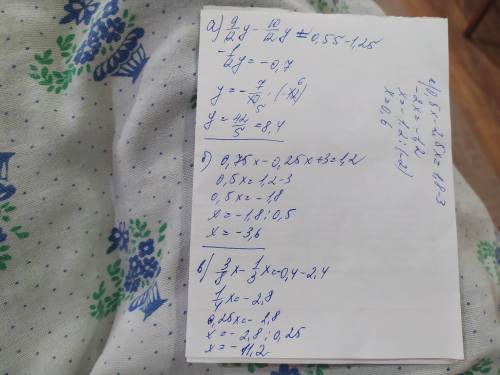 а) 9/12 y - 10/12 y = 0,55-1,25
-1/12 y = -0,7
y = -7/10 · (-12)
y = 42/5 = 8,4
б) 0,75x-0,25x+3=1,2
0,5x=1,2-3
0,5x=-1,8
x=-1,8:0,5
x=-3,6
в) 3/8 x - 1/8 x=-0,4-2,4
1/4 x=-2,8
0,25x=-2,8
x=-2,8:0,25
x=-11,2
0,5x-2,5x=1,8-3
-2x=-1,2
x=-1,2:(-2)
x=0,6